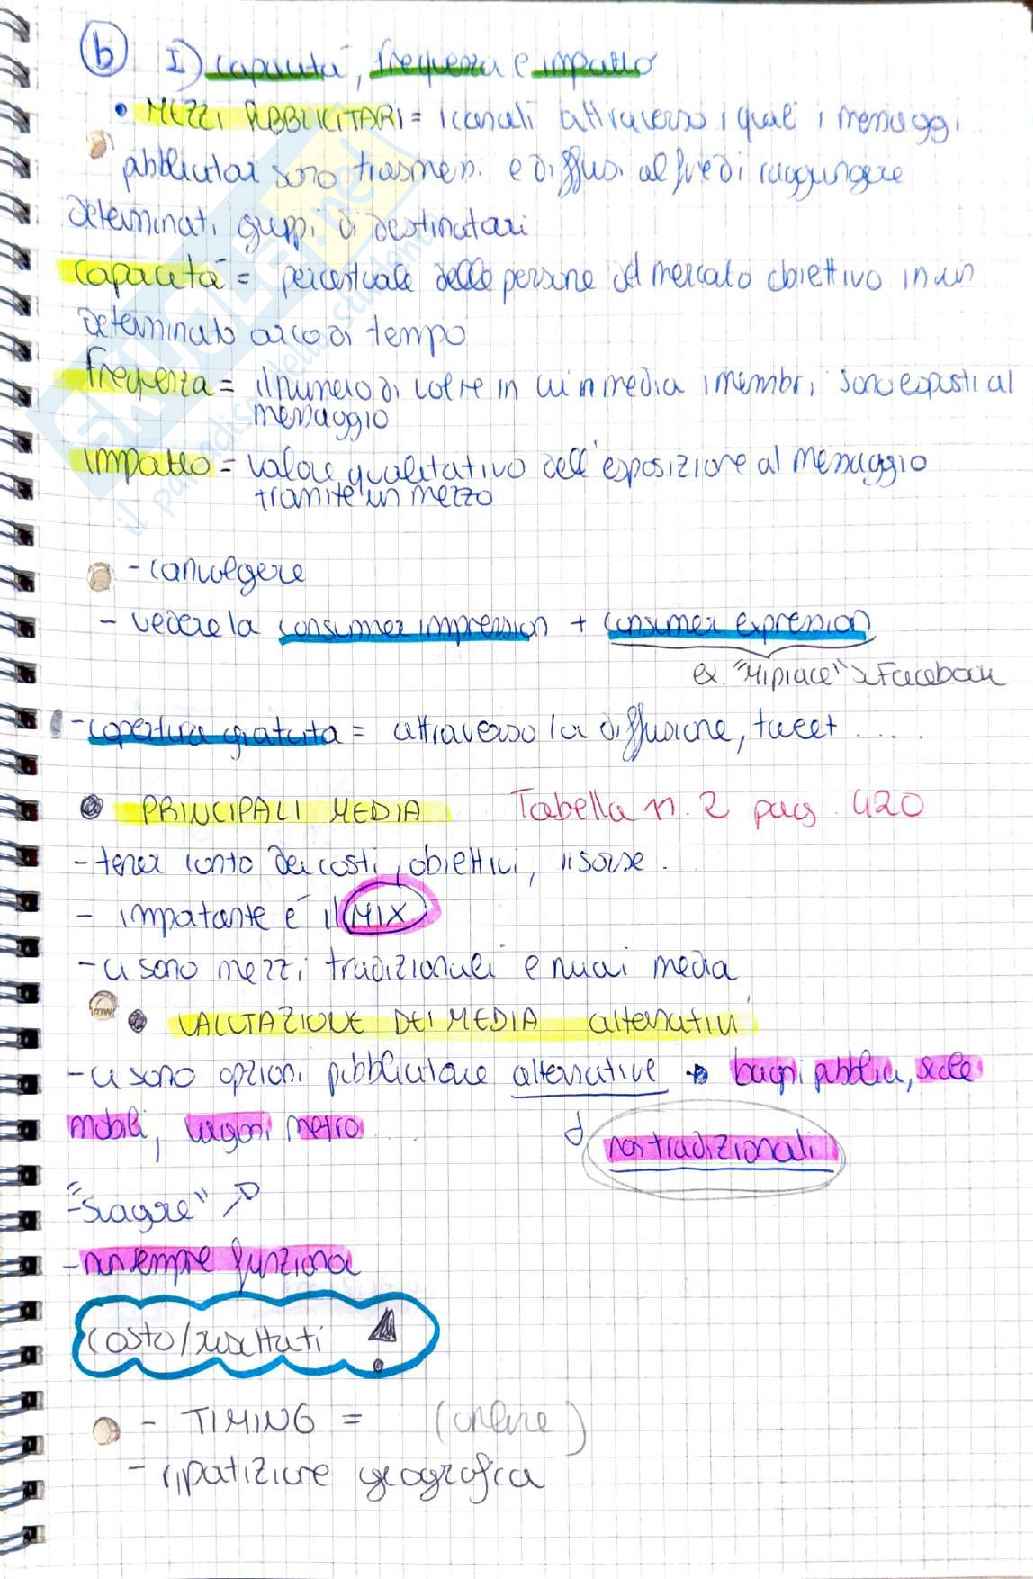 b I) capacità, frequenza e impatto
• MEZZI PUBBLICITARI = i canali attraverso i quali i messaggi
pubblicitari sono trasmessi e diffusi al fine di raggiungere
determinati gruppi di destinatari
capacità = percentuale delle persone del mercato obiettivo in un
determinato arco di tempo
frequenza = il numero di volte in cui in media i membri sono esposti al
messaggio
impatto = valore qualitativo dell'esposizione al messaggio
tramite un mezzo
- convergere
- vedere la consumer impression + consumer expression
ex "Mi piace" Facebook
- copertura gratuita = attraverso la diffusione, tweet .....
• PRINCIPALI MEDIA Tabella n. 2 pag. 420
- tener conto dei costi, obiettivi, risorse.
- importante è il MIX
- ci sono mezzi tradizionali e nuovi media
• VALUTAZIONE DEI MEDIA alternativi
- ci sono opzioni pubblicitarie alternative → bagni pubblici, scale
mobili, vagoni metro
non tradizionali
- non sempre funziona
costo/risultati !
- TIMING = (online)
- ripartizione geografica